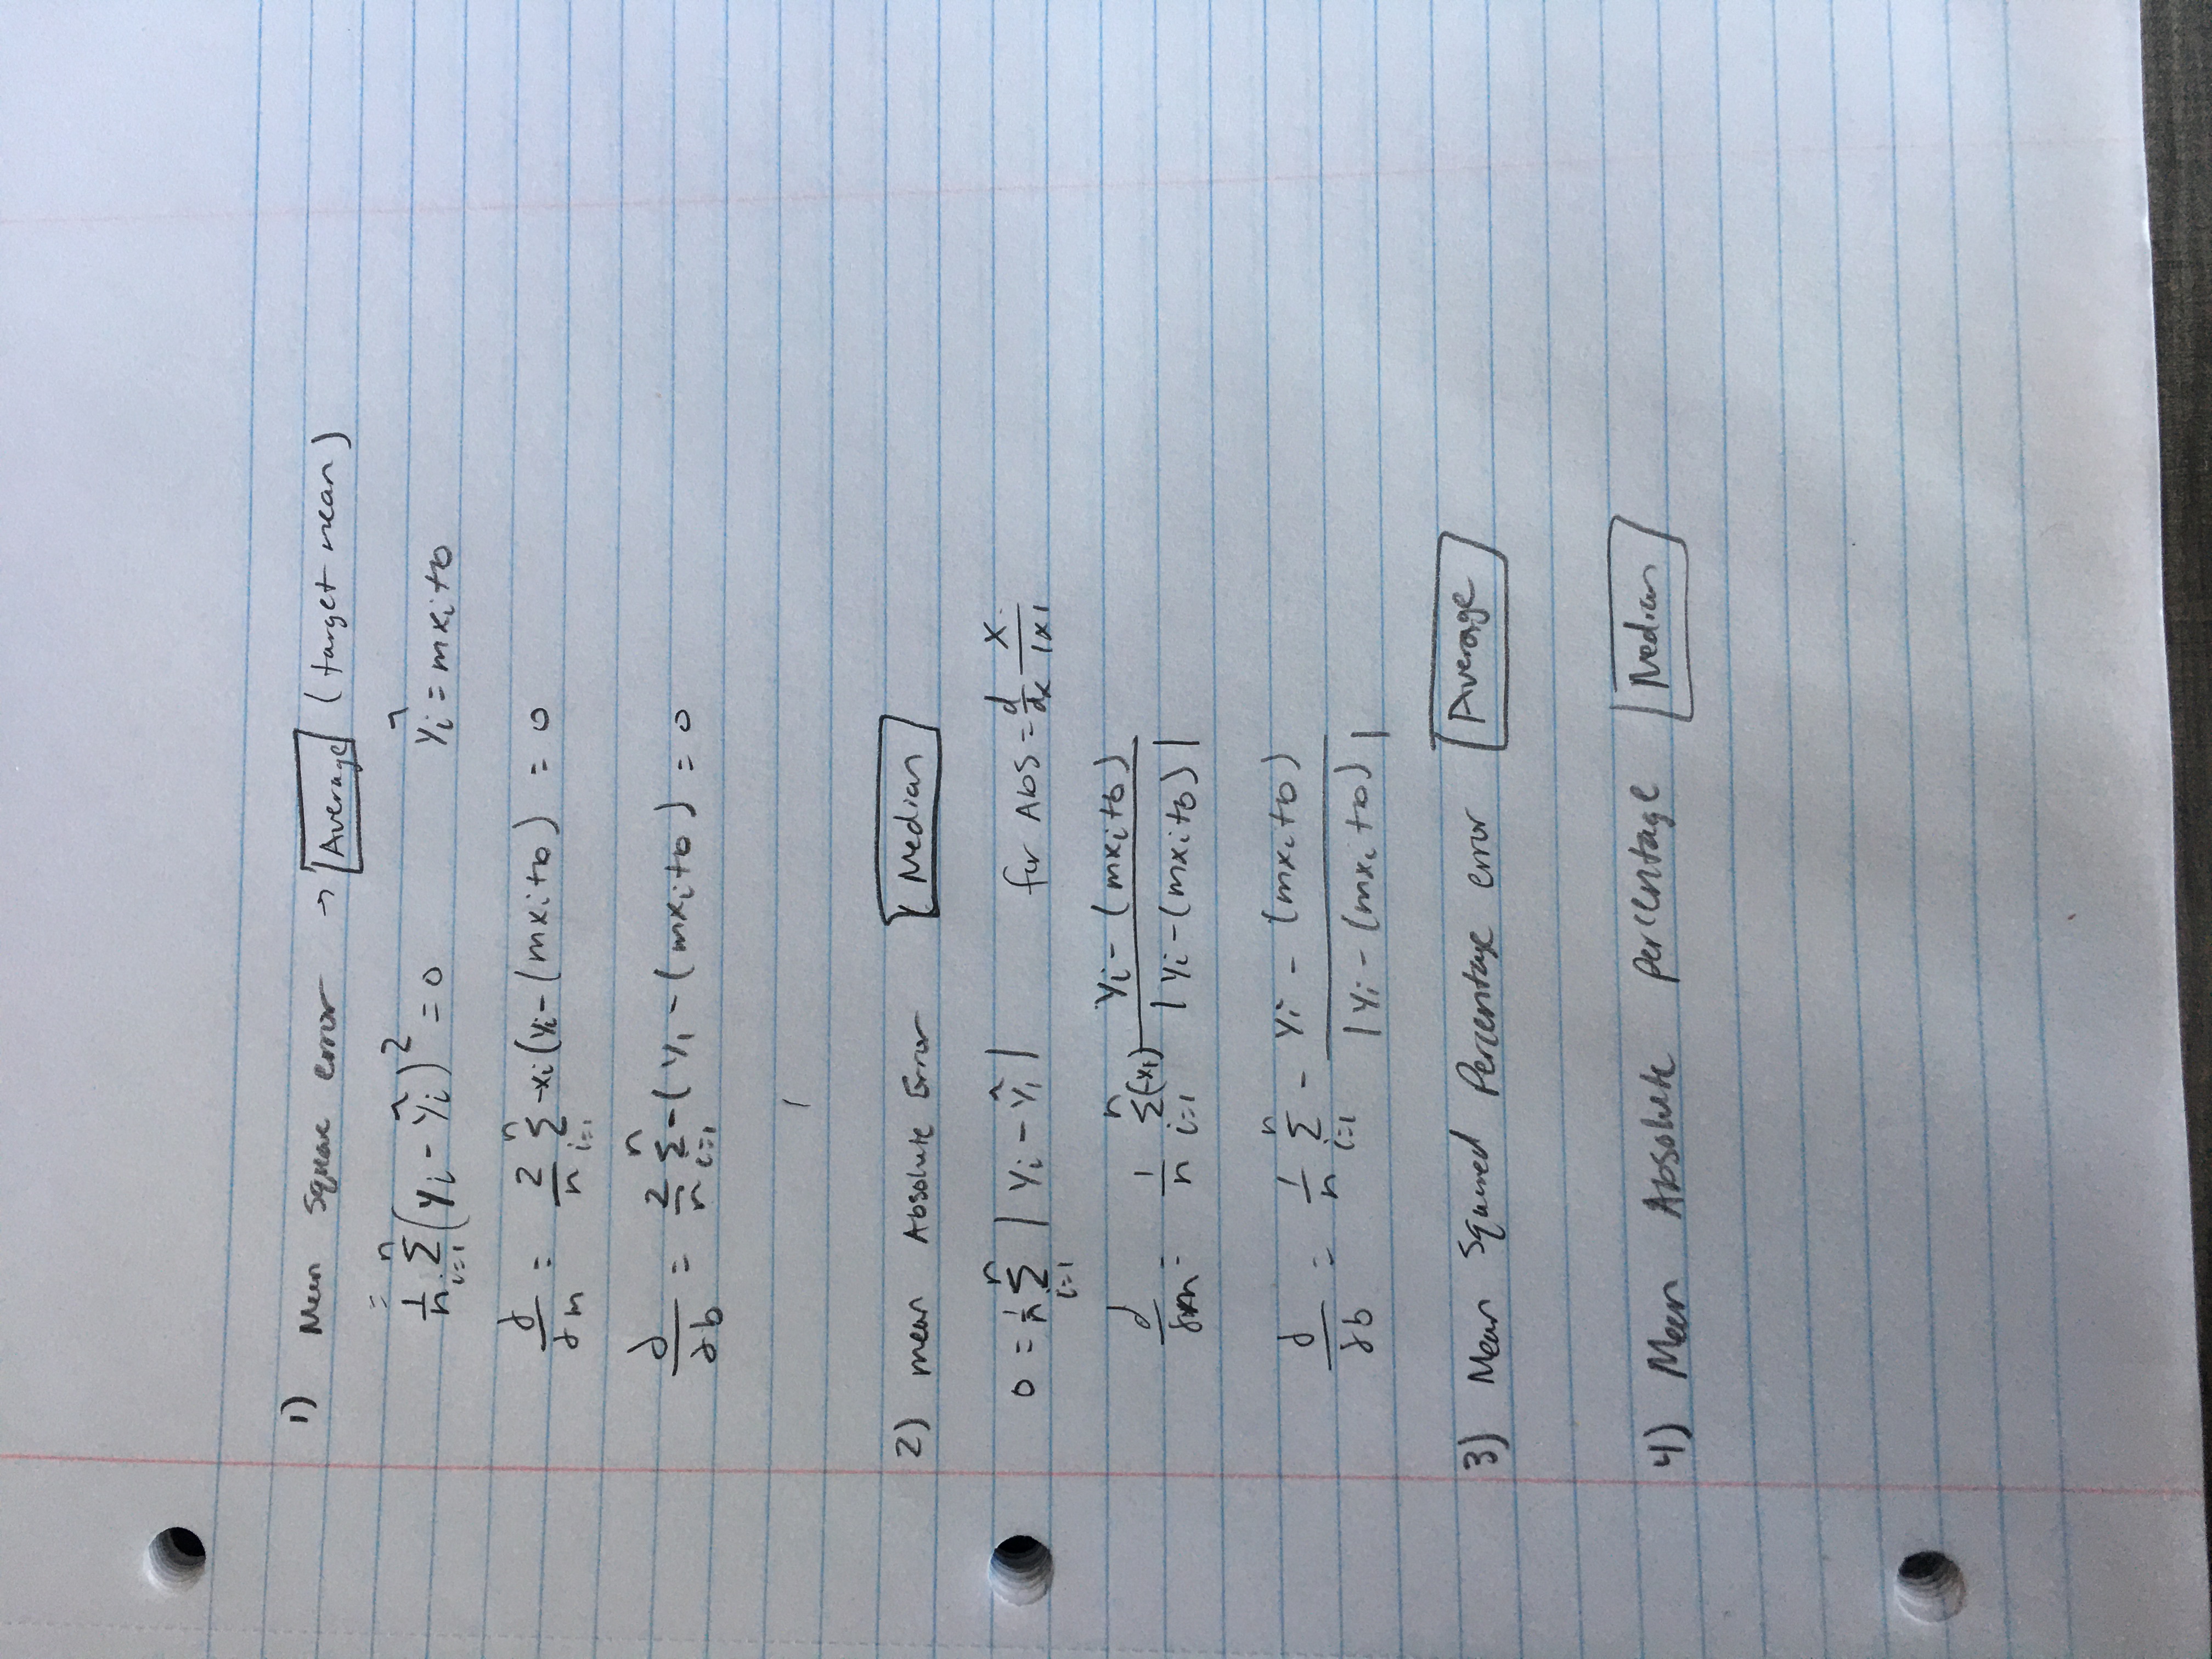 1) Mean Square error → Average (target mean)
= 1/n Σ_{i=1}^{n} (yi - ŷi)² = 0    ŷi = mxi+b
∂/∂m = 2/n Σ_{i=1}^{n} -xi(yi-(mxi+b) = 0
∂/∂b = 2/n Σ_{i=1}^{n} -(yi -(mxi+b) = 0
2) mean Absolute Error Median
0 = 1/n Σ_{i=1}^{n} | yi - ŷi |    for Abs = d/dx x/|x|
∂/∂m = 1/n Σ_{i=1}^{n} (-xi) yi-(mxi+b) / |yi-(mxi+b)|
∂/∂b = 1/n Σ_{i=1}^{n} - yi-(mxi+b) / |yi-(mxi+b)|
3) Mean Squared Percentage error Average
4) Mean Absolute percentage Median